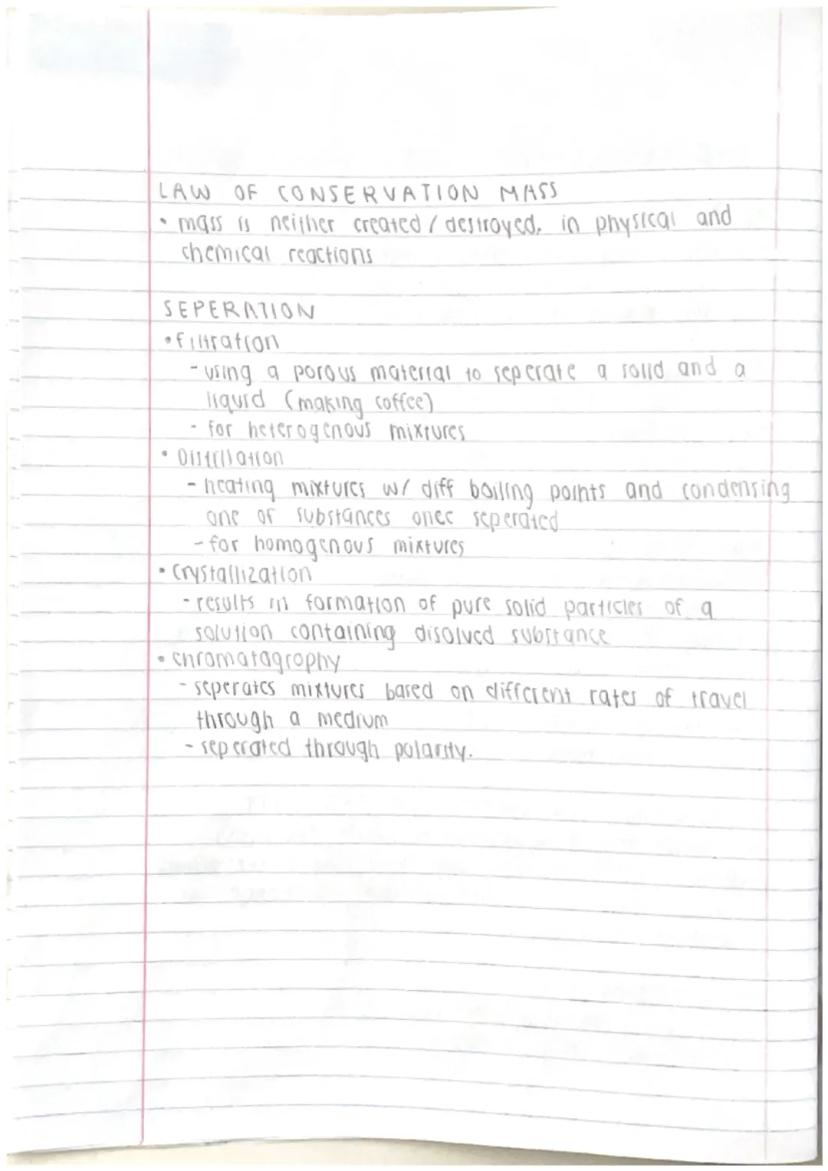 LAW OF CONSERVATION MASS
• mass is neither created / destroyed, in physical and
chemical reactions
SEPERATION
• filtration
- using a porous material to seperate a solid and a
liquid (making coffee)
- for heterogenous mixtures
• Distillation
- heating mixtures w/ diff boiling points and condensing
one of substances once seperated
- for homogenous mixtures
• crystallization
- results in formation of pure solid particles of a
solution containing disolved substance
• chromatagrophy
- seperates mixtures based on different rates of travel
through a medium
- seperated through polarity.